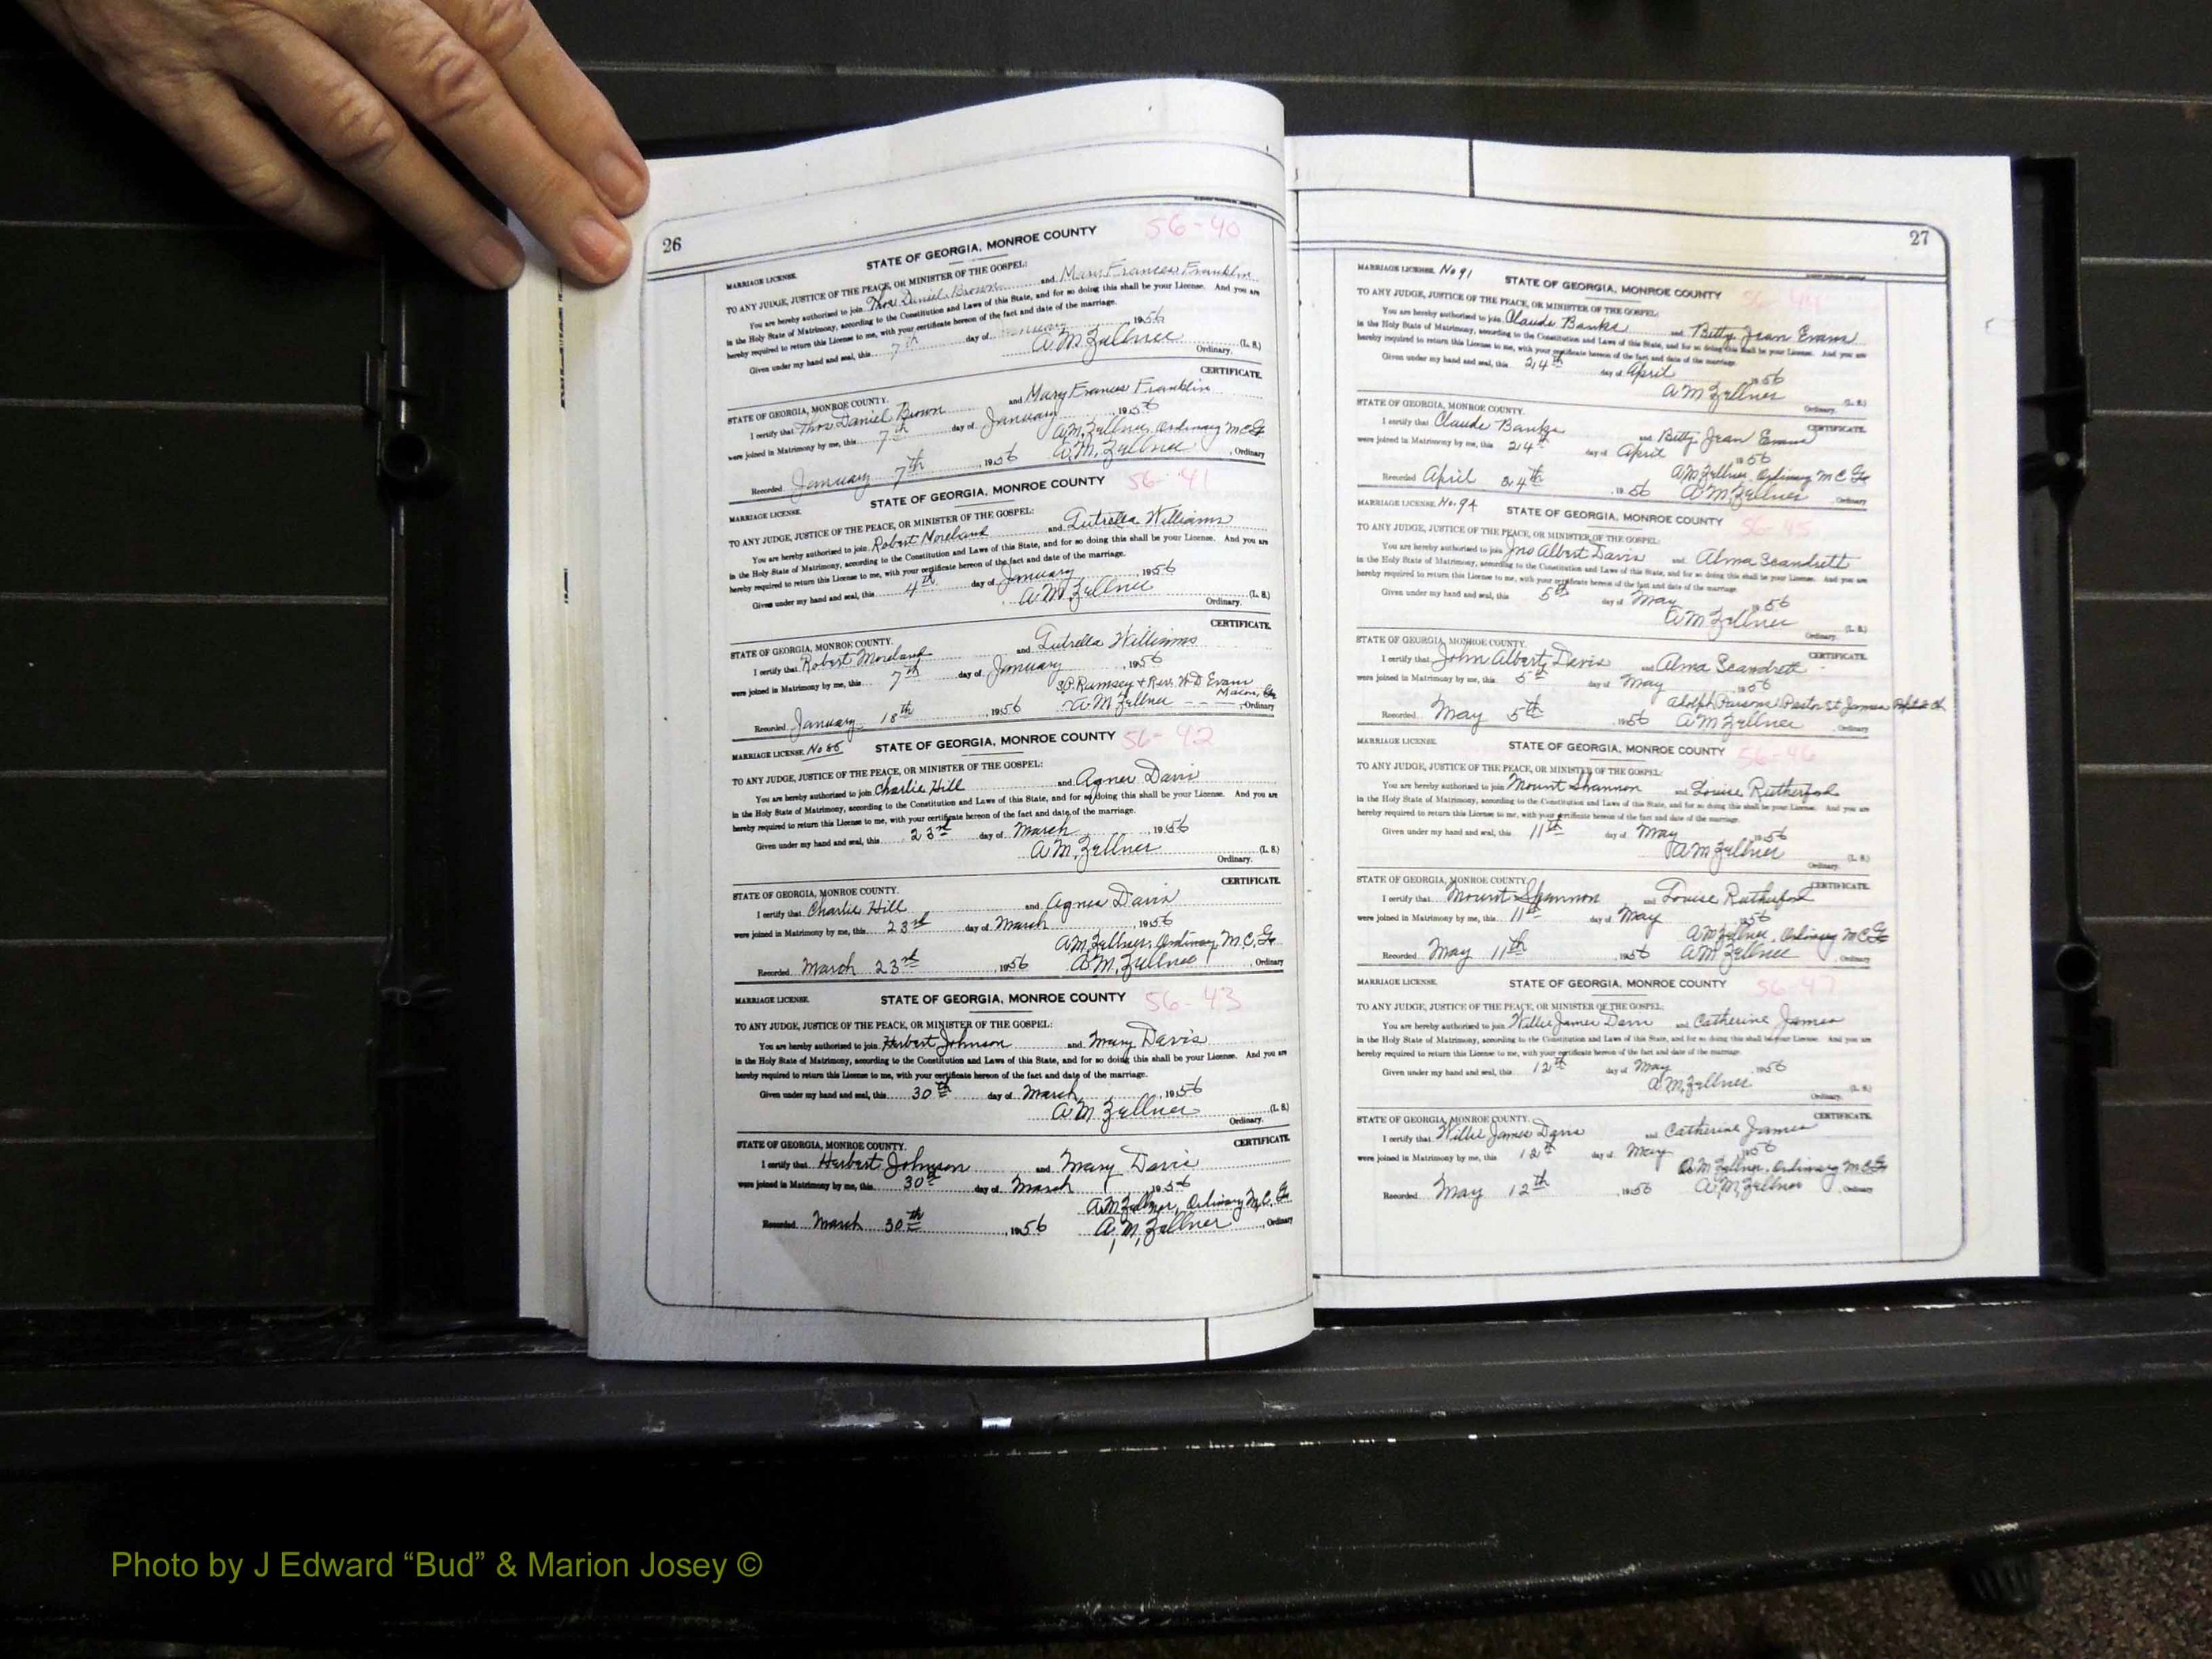 26
56-40
STATE OF GEORGIA, MONROE COUNTY
MARRIAGE LICENSE.
TO ANY JUDGE, JUSTICE OF THE PEACE, OR MINISTER OF THE GOSPEL:
You are hereby authorized to join Thos Daniel Brown and Mary Frances Franklin
in the Holy State of Matrimony, according to the Constitution and Laws of this State, and for so doing this shall be your License. And you are
hereby required to return this License to me, with your certificate hereon of the fact and date of the marriage.
Given under my hand and seal, this 7th day of January 1956
A. M. Zellner (L. S.)
Ordinary.
CERTIFICATE.
STATE OF GEORGIA, MONROE COUNTY.
I certify that Thos Daniel Brown and Mary Frances Franklin
were joined in Matrimony by me, this 7th day of January 1956
A. M. Zellner, Ordinary M C Ga
Recorded January 7th, 1956 A. M. Zellner, Ordinary
56-41
STATE OF GEORGIA, MONROE COUNTY
MARRIAGE LICENSE.
TO ANY JUDGE, JUSTICE OF THE PEACE, OR MINISTER OF THE GOSPEL:
You are hereby authorized to join Robert Moreland and Williams
in the Holy State of Matrimony, according to the Constitution and Laws of this State, and for so doing this shall be your License. And you are
hereby required to return this License to me, with your certificate hereon of the fact and date of the marriage.
Given under my hand and seal, this 4th day of January, 1956
A. M. Zellner (L. S.)
Ordinary.
CERTIFICATE.
STATE OF GEORGIA, MONROE COUNTY.
I certify that Robert Moreland and Williams
were joined in Matrimony by me, this 7th day of January, 1956
Rumsey & Rev. W D Evans
Macon, Ga
Recorded January 18th, 1956 A. M. Zellner, Ordinary
MARRIAGE LICENSE. No 86 STATE OF GEORGIA, MONROE COUNTY 56-42
TO ANY JUDGE, JUSTICE OF THE PEACE, OR MINISTER OF THE GOSPEL:
You are hereby authorized to join Charlie Hill and Agnes Davis
in the Holy State of Matrimony, according to the Constitution and Laws of this State, and for so doing this shall be your License. And you are
hereby required to return this License to me, with your certificate hereon of the fact and date of the marriage.
Given under my hand and seal, this 23rd day of March, 1956
A. M. Zellner (L. S.)
Ordinary.
CERTIFICATE.
STATE OF GEORGIA, MONROE COUNTY.
I certify that Charlie Hill and Agnes Davis
were joined in Matrimony by me, this 23rd day of March, 1956
A. M. Zellner, Ordinary, M. C. Ga
Recorded March 23rd, 1956 A. M. Zellner, Ordinary
MARRIAGE LICENSE. STATE OF GEORGIA, MONROE COUNTY 56-43
TO ANY JUDGE, JUSTICE OF THE PEACE, OR MINISTER OF THE GOSPEL:
You are hereby authorized to join Herbert Johnson and Mary Davis
in the Holy State of Matrimony, according to the Constitution and Laws of this State, and for so doing this shall be your License. And you are
hereby required to return this License to me, with your certificate hereon of the fact and date of the marriage.
Given under my hand and seal, this 30th day of March, 1956
A. M. Zellner (L. S.)
Ordinary.
CERTIFICATE.
STATE OF GEORGIA, MONROE COUNTY.
I certify that Herbert Johnson and Mary Davis
were joined in Matrimony by me, this 30th day of March, 1956
A. M. Zellner, Ordinary M. C. Ga
Recorded March 30th, 1956 A. M. Zellner, Ordinary
27
MARRIAGE LICENSE. No 91
STATE OF GEORGIA, MONROE COUNTY 56-44
TO ANY JUDGE, JUSTICE OF THE PEACE, OR MINISTER OF THE GOSPEL:
You are hereby authorized to join Claude Banks and Betty Jean Evans
in the Holy State of Matrimony, according to the Constitution and Laws of this State, and for so doing this shall be your License. And you are
hereby required to return this License to me, with your certificate hereon of the fact and date of the marriage.
Given under my hand and seal, this 24th day of April 1956
A M Zellner (L. S.)
Ordinary.
STATE OF GEORGIA, MONROE COUNTY.
CERTIFICATE.
I certify that Claude Banks and Betty Jean Evans
were joined in Matrimony by me, this 24th day of April 1956
A M Zellner, Ordinary M C Ga
Recorded April 24th, 1956 A. M. Zellner Ordinary
MARRIAGE LICENSE. No. 94 STATE OF GEORGIA, MONROE COUNTY 56-45
TO ANY JUDGE, JUSTICE OF THE PEACE, OR MINISTER OF THE GOSPEL:
You are hereby authorized to join Jno Albert Davis and Alma Scandreth
in the Holy State of Matrimony, according to the Constitution and Laws of this State, and for so doing this shall be your License. And you are
hereby required to return this License to me, with your certificate hereon of the fact and date of the marriage.
Given under my hand and seal, this 5th day of May 1956
A M Zellner (L. S.)
Ordinary.
STATE OF GEORGIA, MONROE COUNTY.
CERTIFICATE.
I certify that John Albert Davis and Alma Scandreth
were joined in Matrimony by me, this 5th day of May 1956
Adolph Parsons Pastor St James
Recorded May 5th, 1956 A M Zellner, Ordinary
MARRIAGE LICENSE. STATE OF GEORGIA, MONROE COUNTY 56-46
TO ANY JUDGE, JUSTICE OF THE PEACE, OR MINISTER OF THE GOSPEL:
You are hereby authorized to join Mount Shannon and Louise Rutherford
in the Holy State of Matrimony, according to the Constitution and Laws of this State, and for so doing this shall be your License. And you are
hereby required to return this License to me, with your certificate hereon of the fact and date of the marriage.
Given under my hand and seal, this 11th day of May 1956
A M Zellner (L. S.)
Ordinary.
STATE OF GEORGIA, MONROE COUNTY.
CERTIFICATE.
I certify that Mount Shannon and Louise Rutherford
were joined in Matrimony by me, this 11th day of May 1956
A M Zellner, Ordinary M C Ga
Recorded May 11th, 1956 A M Zellner, Ordinary
MARRIAGE LICENSE. STATE OF GEORGIA, MONROE COUNTY 56-47
TO ANY JUDGE, JUSTICE OF THE PEACE, OR MINISTER OF THE GOSPEL:
You are hereby authorized to join Willie James Davis and Catherine James
in the Holy State of Matrimony, according to the Constitution and Laws of this State, and for so doing this shall be your License. And you are
hereby required to return this License to me, with your certificate hereon of the fact and date of the marriage.
Given under my hand and seal, this 12th day of May 1956
A. M. Zellner (L. S.)
Ordinary.
STATE OF GEORGIA, MONROE COUNTY.
CERTIFICATE.
I certify that Willie James Davis and Catherine James
were joined in Matrimony by me, this 12th day of May 1956
A. M Zellner, Ordinary M C Ga
Recorded May 12th, 1956 A. M. Zellner, Ordinary
Photo by J Edward “Bud” & Marion Josey ©